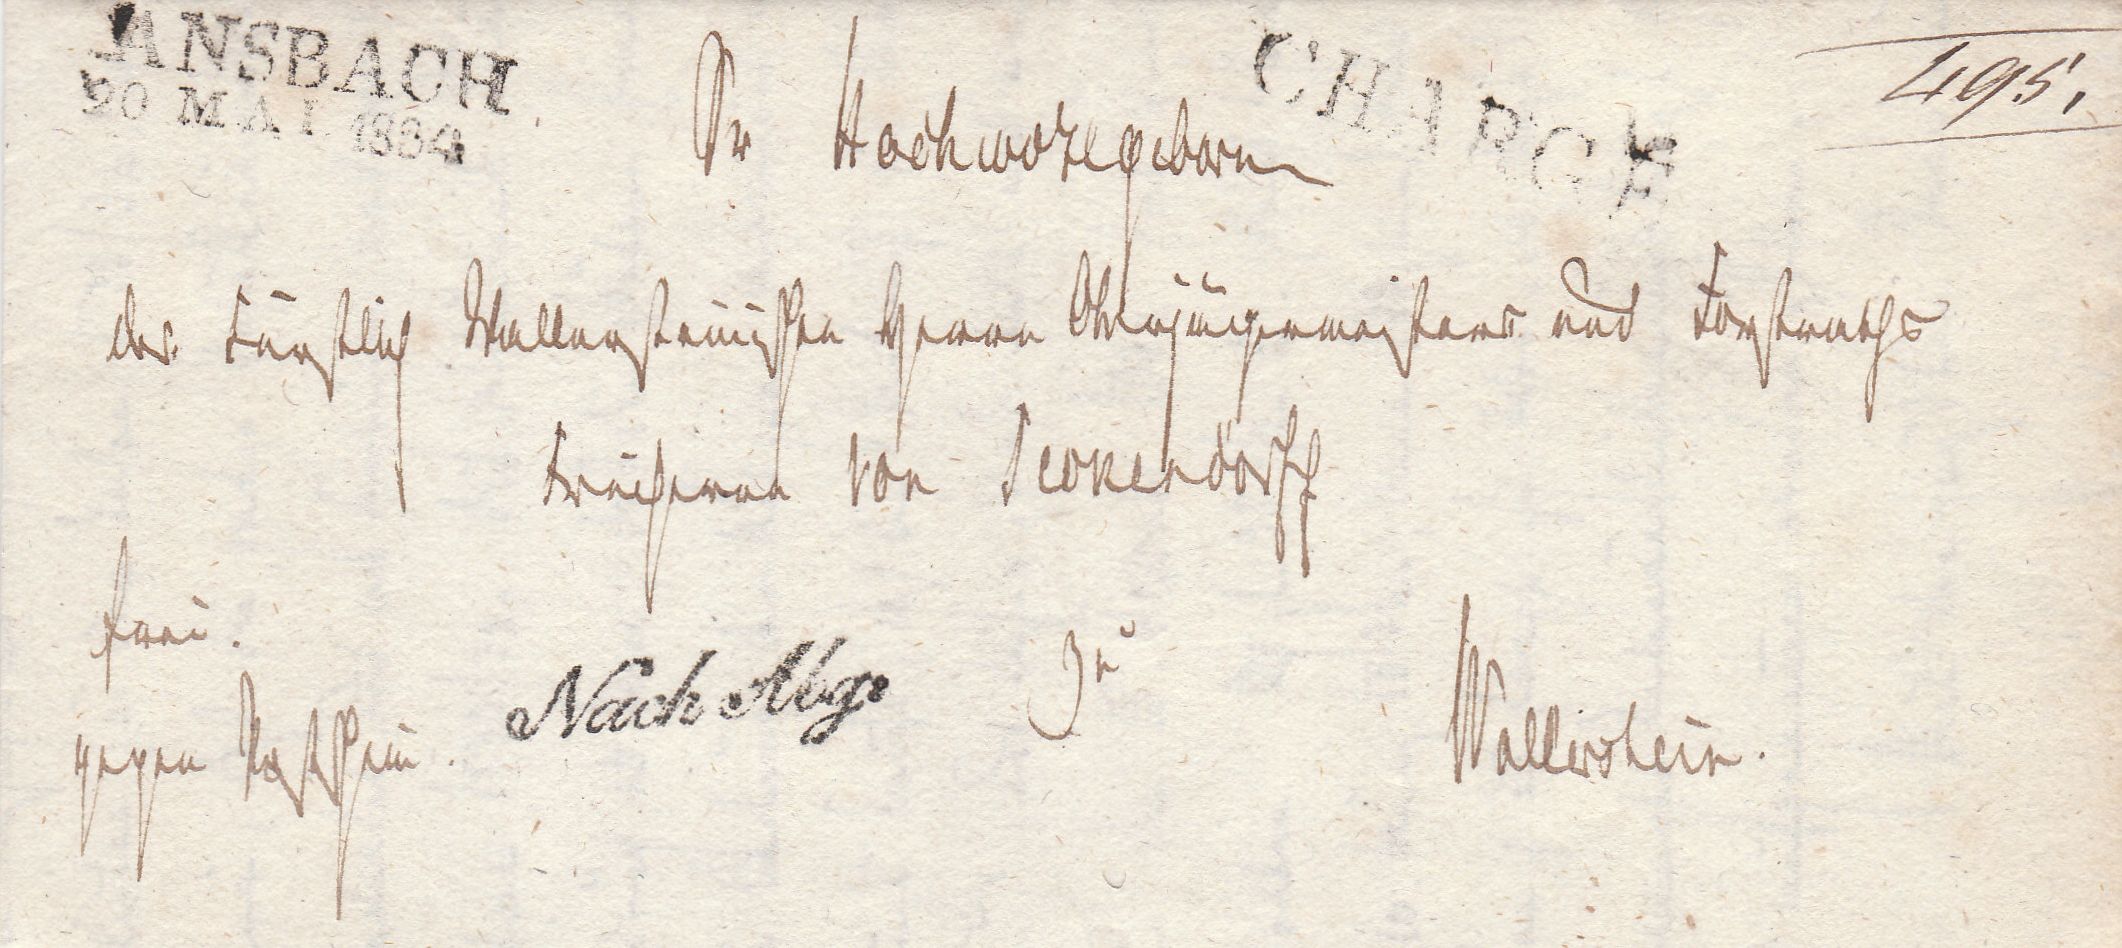 ANSBACH
20 MAI 1834
CHARGÉ
495.
Sr Hochwohlgeborn
des Fürstlich Wallersteinischen Herrn Oberjägermeisters und Forstraths
Freiherrn von Seckendorff
frei.
gegen Postschein.
Nach Abg.
zu
Wallerstein.